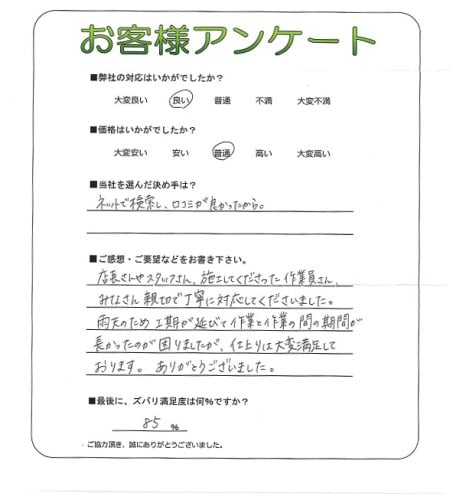 お客様アンケート
■弊社の対応はいかがでしたか?
大変良い 良い 普通 不満 大変不満
■価格はいかがでしたか?
大変安い 安い 普通 高い 大変高い
■当社を選んだ決め手は?
ネットで検索し、口コミが良かったから。
■ご感想・ご要望などをお書き下さい。
店長さんやスタッフさん、施工してくださった作業員さん、
みなさん親切で丁寧に対応してくださいました。
雨天のため工期が延びて作業と作業の間の期間が
長かったのが困りましたが、仕上りは大変満足して
おります。ありがとうございました。
■最後に、ズバリ満足度は何%ですか?
85 %
ご協力頂き、誠にありがとうございました。